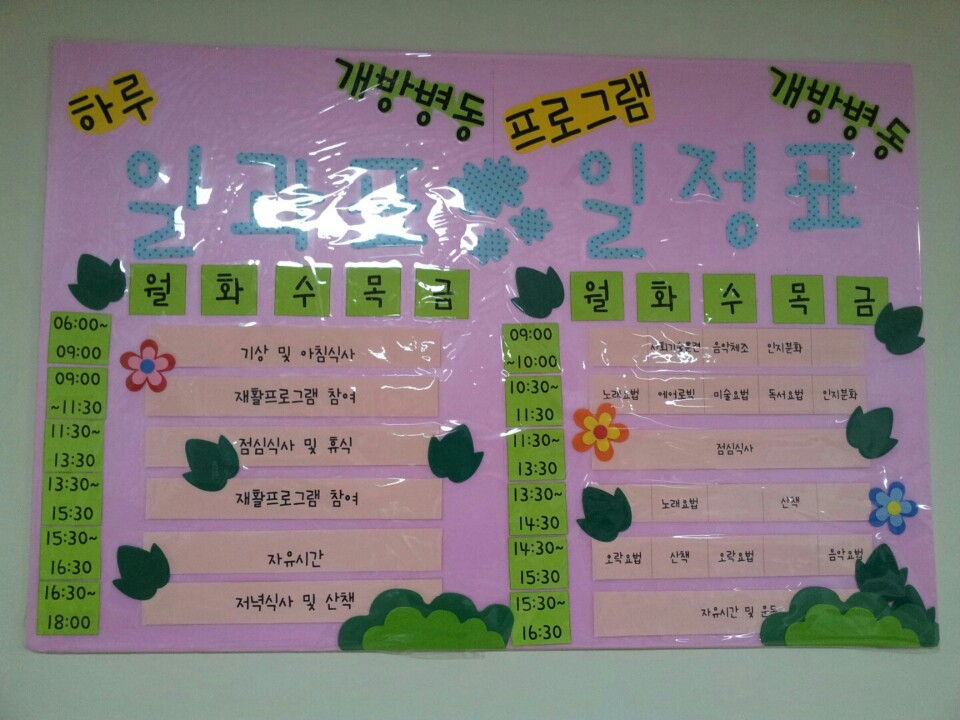 하루 개방병동
일과표
월 화 수 목 금
06:00~
09:00
기상 및 아침식사
09:00
~11:30
재활프로그램 참여
11:30~
13:30
점심식사 및 휴식
13:30~
15:30
재활프로그램 참여
15:30~
16:30
자유시간
16:30~
18:00
저녁식사 및 산책
프로그램 개방병동
일정표
월 화 수 목 금
09:00
~10:00
사회기술훈련 음악체조 인지문화
10:30~
11:30
노래요법 에어로빅 미술요법 독서요법 인지문화
11:30~
13:30
점심식사
13:30~
14:30
노래요법 산책
14:30~
15:30
오락요법 산책 오락요법 음악요법
15:30~
16:30
자유시간 및 운동